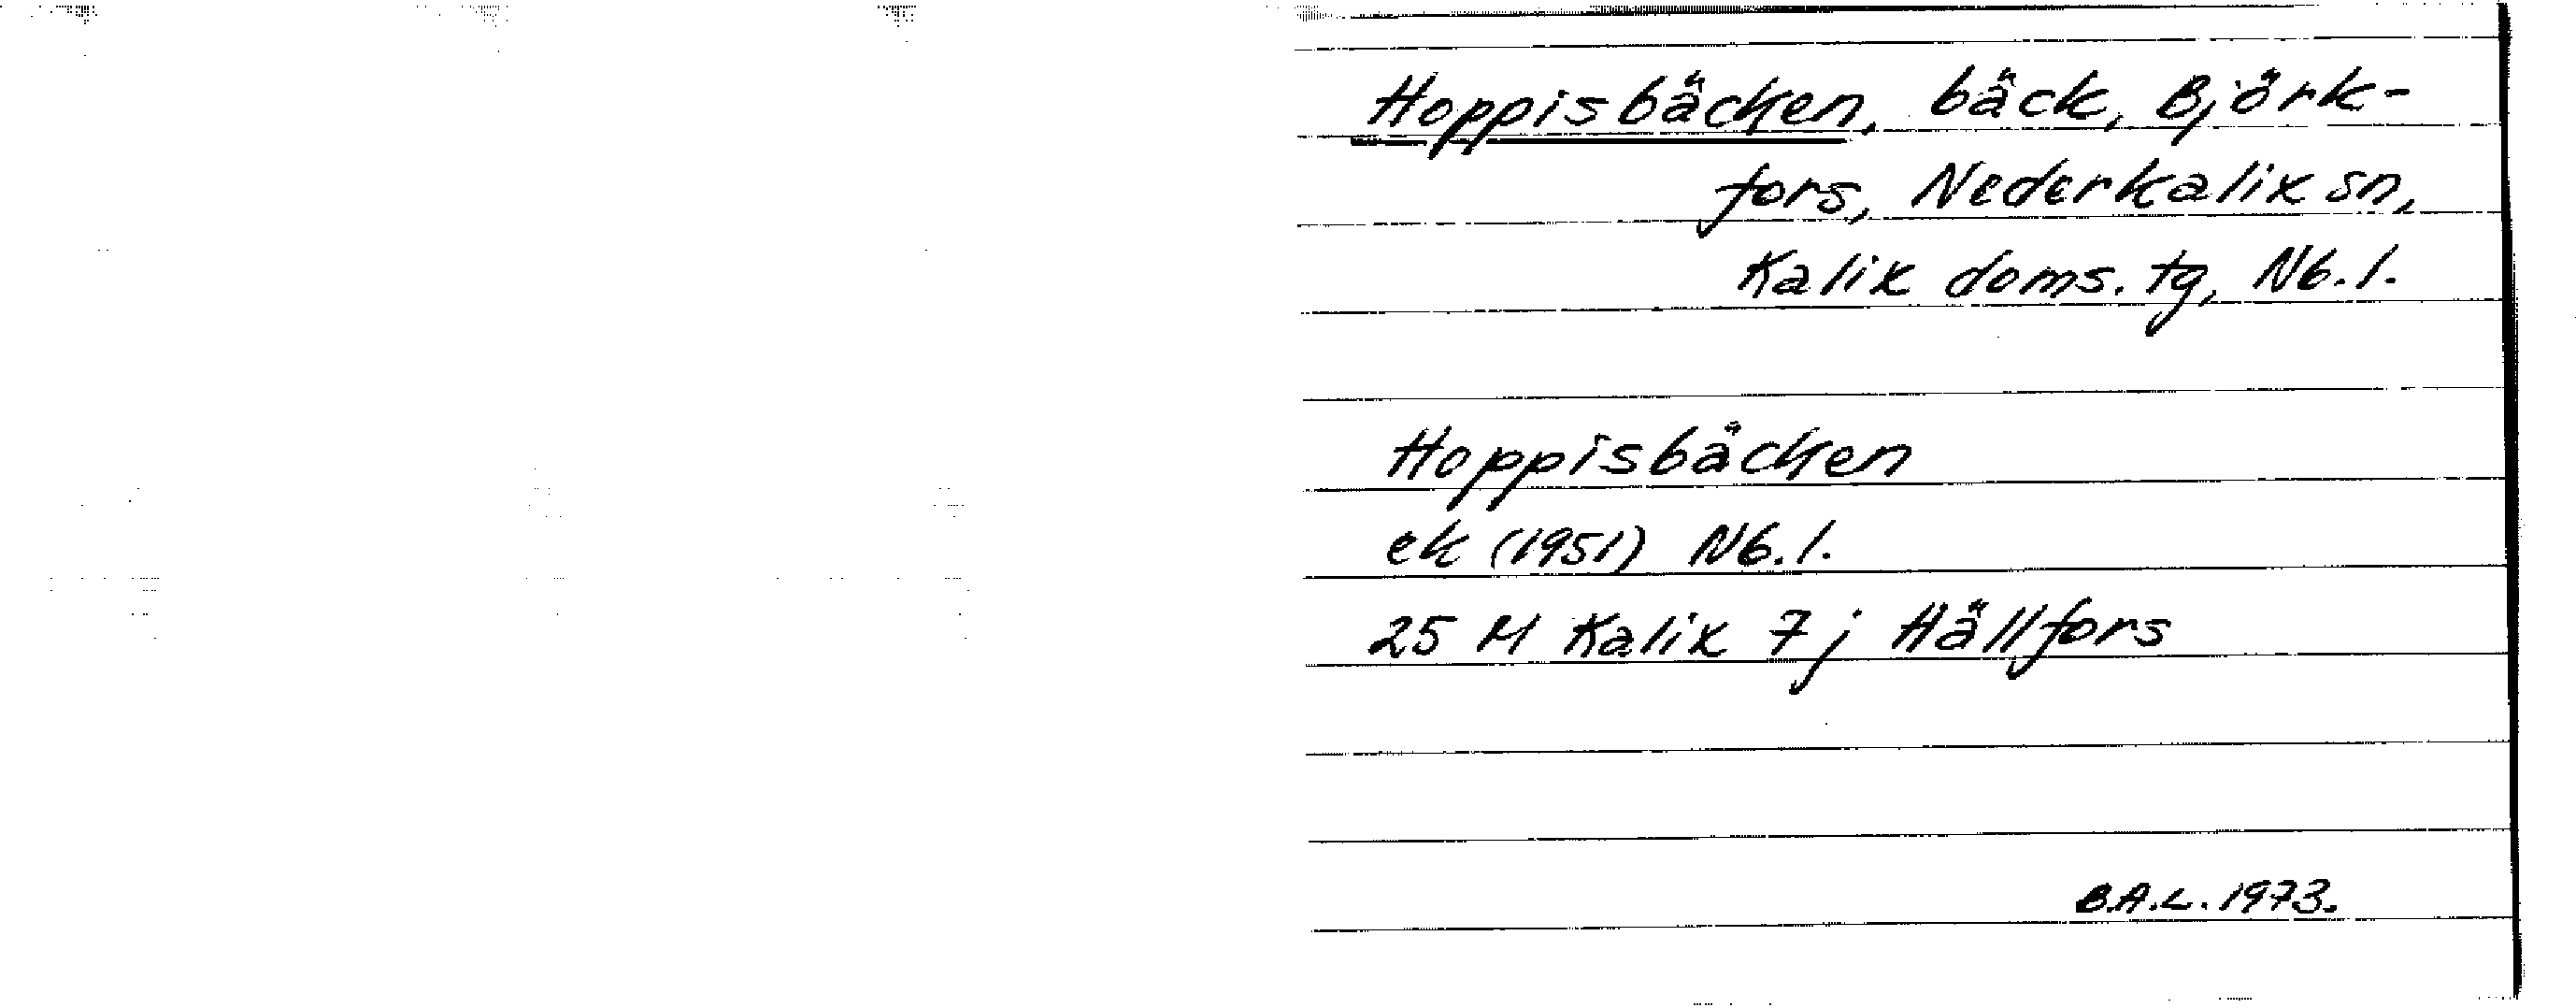 Hoppisbäcken, bäck, Björk-
fors, Nederkalix sn,
Kalix doms. tg, Nb. l.
Hoppisbäcken
ek (1951) Nb. l.
25 M Kalix 7 j Hällfors
B.A.L. 1973.